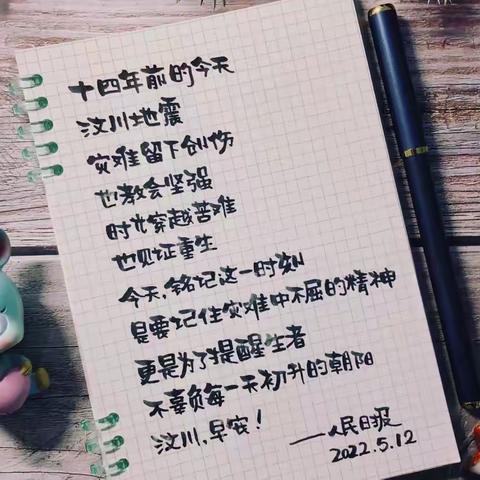 十四年前的今天
汶川地震
灾难留下创伤
也教会坚强
时光穿越苦难
也见证重生
今天,铭记这一时刻
是要记住灾难中不屈的精神
更是为了提醒生者
不辜负每一天初升的朝阳
汶川,早安!
——人民日报
2022.5.12